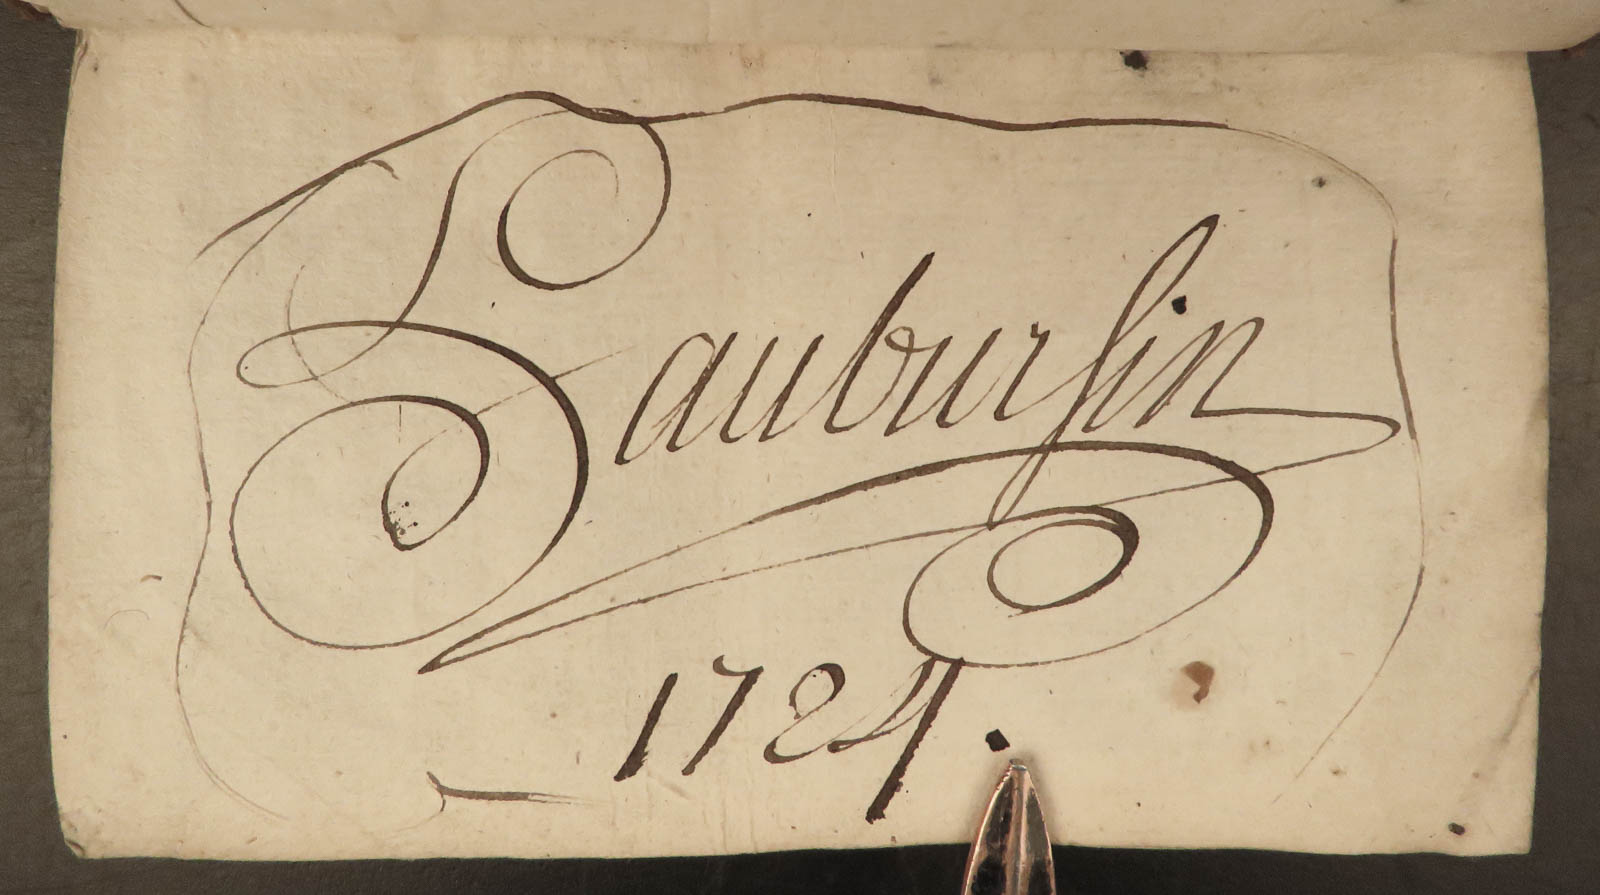 Lauburſin
1724.